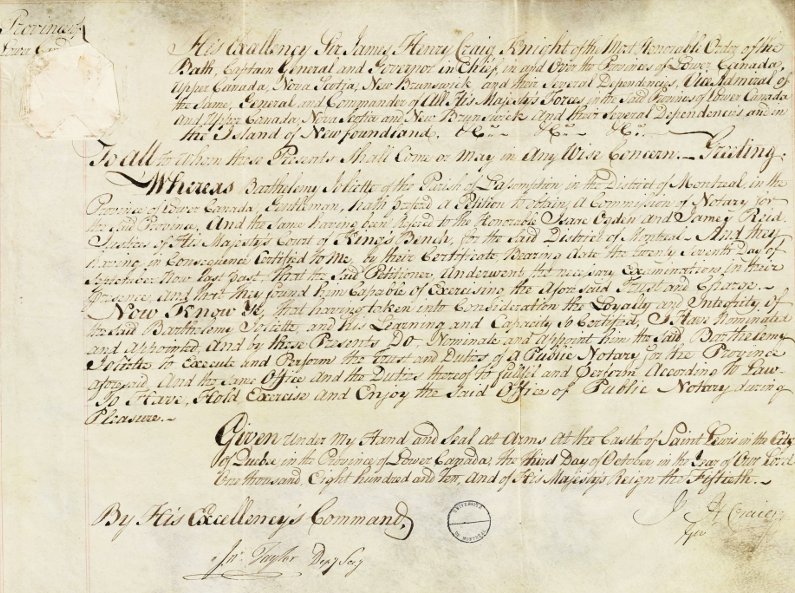 Province of
Lower Can
His Excellency Sir James Henry Craig Knight of the Most Honorable Order of the
Bath, Captain General and Governor in Chief, in and Over the Provinces of Lower Canada,
Upper Canada, Nova Scotia, New Brunswick and their Several Dependencies, Vice Admiral of
the Same, General and Commander of All His Majesty's Forces in the Said Provinces of Lower Canada
And Upper Canada, Nova Scotia and New Brunswick And their Several Dependencies and in
the Island of Newfoundland, &c &c &c
To all to Whom these Presents Shall Come or May in Any Wise Concern. Greeting:
Whereas Barthelemy Joliette of the Parish of Lasomption in the District of Montreal, in the
Province of Lower Canada, Gentleman, hath prefered a Petition to obtain, a Commission of Notary for
the Said Province, And the Same having been Refered to the Honorable Isaac Ogden and James Reid
Justices of His Majesty's Court of King's Bench, for the Said District of Montreal And they
having in Consequence Certified to Me, by their Certificate Bearing date the twenty Seventh Day of
September Now last past, that the Said Petitioner Underwent the necessary Examinations in their
Presence, And that they found him Capable of Exercising the Aforesaid Trust and Charge.
Now Know Ye, that having taken into Consideration the Loyalty and Integrity of
the Said Barthelemy Joliette, and his Learning and Capacity So Certified, I Have Nominated
and Appointed, And by these Presents Do Nominate and Appoint him the Said, Barthelemy
Joliette to Execute and Perform the trust and Duties of A Public Notary for the Province
aforesaid, And the Same Office And the Duties thereof to fulfil and Perform According to Law
To Have, Hold Exercise and Enjoy the Said Office of Public Notary during
Pleasure.
Given Under My Hand and Seal at Arms At the Castle of Saint Lewis in the City
of Quebec in the Province of Lower Canada, the third Day of October in the Year of Our Lord
One thousand, Eight hundred and Ten, And of His Majesty's Reign the Fiftieth.
J H Craig
Gov
By His Excellency's Command,
Jn. Taylor Depy Secy
UNIVERSITÉ DE MONTRÉAL